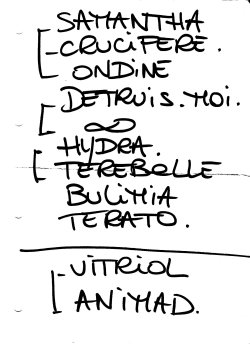 SAMANTHA
-CRUCIFERE.
ONDINE
DETRUIS.MOI.
∞
HYDRA.
TEREBELLE
BULIMIA
TERATO.
-VITRIOL
ANIMAD.